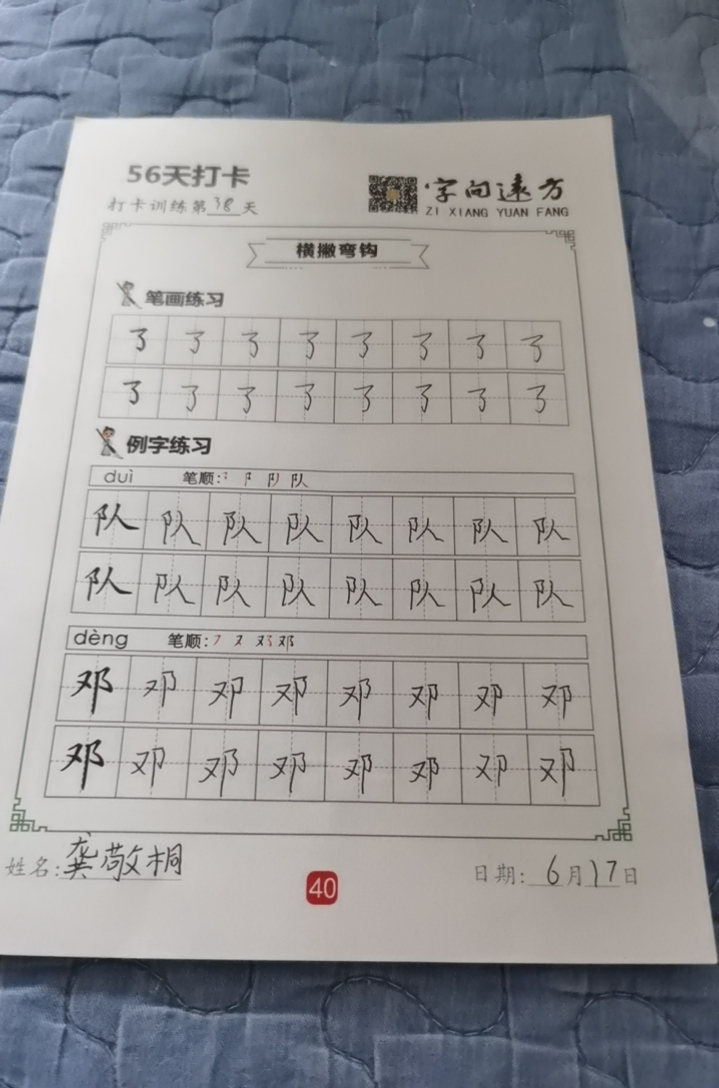 56天打卡
打卡训练第38天
字向远方
ZI XIANG YUAN FANG
横撇弯钩
笔画练习
了 了 了 了 了 了 了 了
了 了 了 了 了 了 了 了
例字练习
duì 笔顺: 阝 队
队 队 队 队 队 队 队 队
队 队 队 队 队 队 队 队
dèng 笔顺: フ 又 邓
邓 邓 邓 邓 邓 邓 邓 邓
邓 邓 邓 邓 邓 邓 邓 邓
姓名:龚敬桐
40
日期: 6月17日